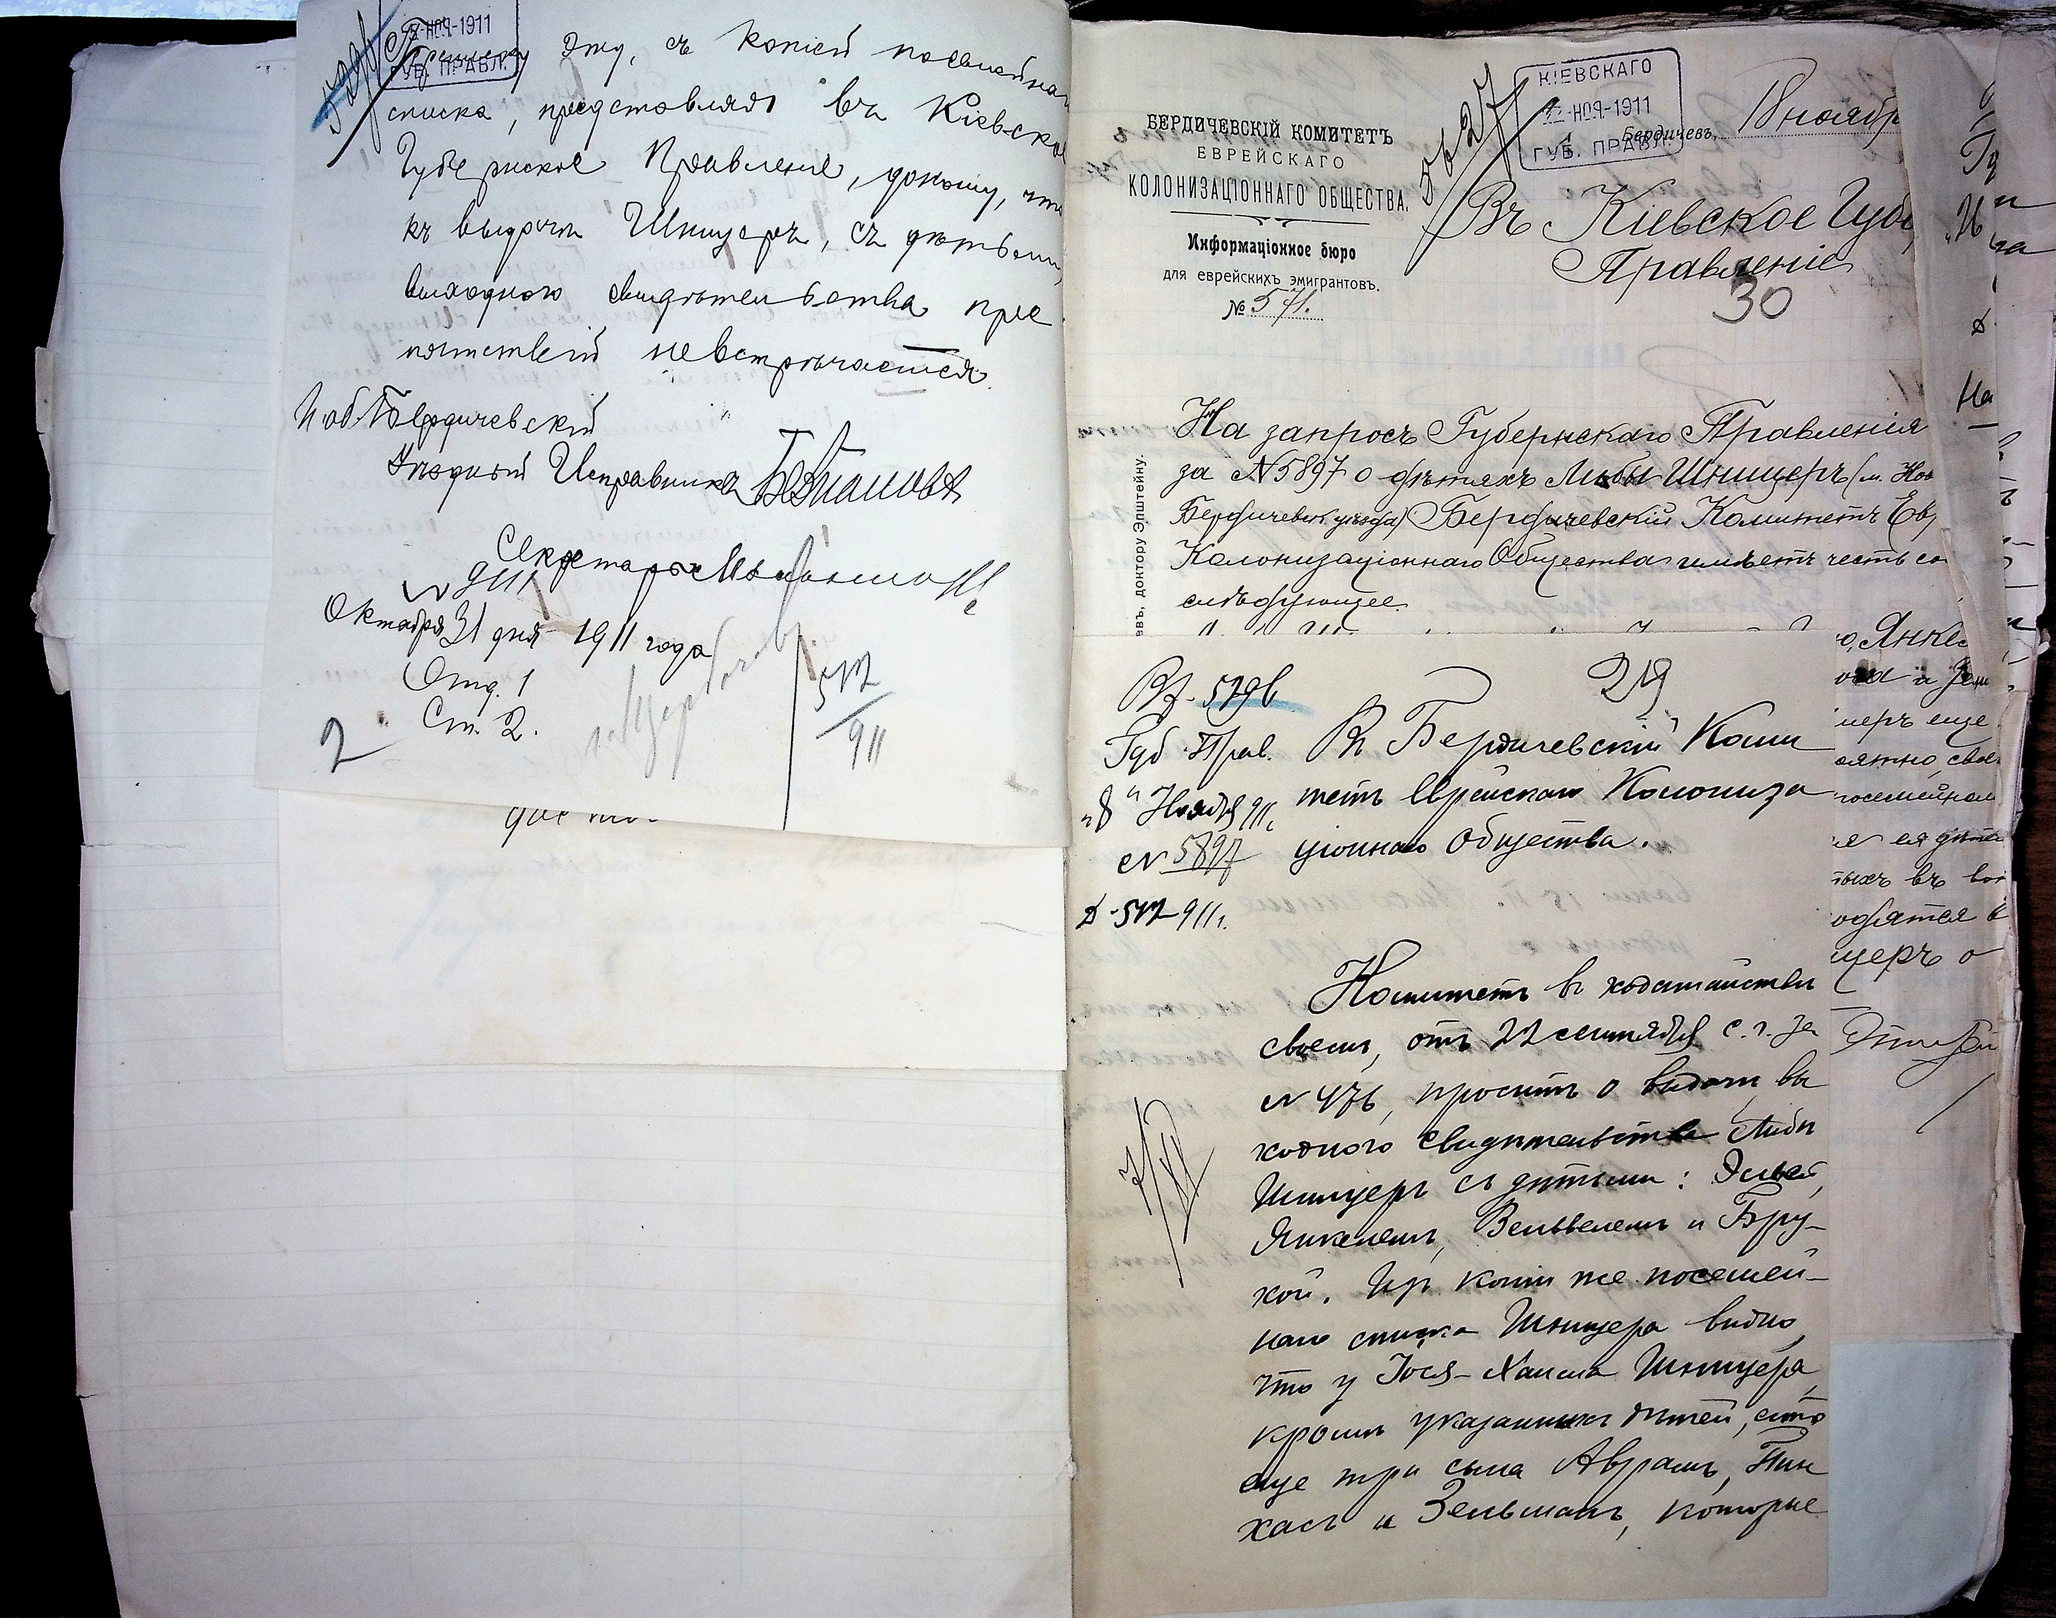 НОЯ-1911
ГУБ. ПРАВЛ.
эту, съ копіей посемейна
списка, представляя въ Кіевско
Губернское Правленіе, доношу, что
къ выдачѣ Шницеръ, съ дѣтьми,
выходного свидѣтельства пре
пятствій невстрѣчается.
И об. Бердичевскій
Уѣздный Исправника
Секретарь
Октября 31 дня 1911 года
Отд. 1
Ст. 2.
2
517
911
БЕРДИЧЕВСКІЙ КОМИТЕТЪ
ЕВРЕЙСКАГО
КОЛОНИЗАЦІОННАГО ОБЩЕСТВА.
Информаціонное бюро
для еврейскихъ эмигрантовъ.
№ 571.
5627
КІЕВСКАГО
НОЯ-1911
ГУБ. ПРАВЛ.
Бердичевъ, 18 ноябр
Въ Кіевское Губ
Правленіе
30
На запросъ Губернскаго Правленія
за №5897 о дѣтяхъ Либы Шницеръ (м. Нов
Бердичевск. уѣзда) Бердичевскій Комитетъ Евр
Колонизаціоннаго Общества имѣетъ честь со
слѣдующее.
евъ, доктору Эпштейну.
29
Губ. Прав.
"8" Ноября 911 г.
№ 5897
Д. 517 911 г.
Въ Бердичевскій Коми
тетъ Еврейскаго Колониза
ціоннаго Общества.
Комитетъ въ ходатайствѣ
своемъ, отъ 22 сентября с. г. за
№ 476, проситъ о выдачѣ вы
ходного свидѣтельства Либѣ
Шницеръ съ дѣтьми: Эльей,
Янкелемъ, Вельвелемъ и Бру-
хой. Изъ копіи же посемей-
наго списка Шницера видно,
что у Іося-Хаима Шницера,
кромѣ указанныхъ дѣтей, есть
еще три сына Аврамъ, Пин
хасъ и Зельманъ, которые
о, Янке
церъ еще
оятно, свое
посемейном
я ея дѣте
одятся в
церъ о